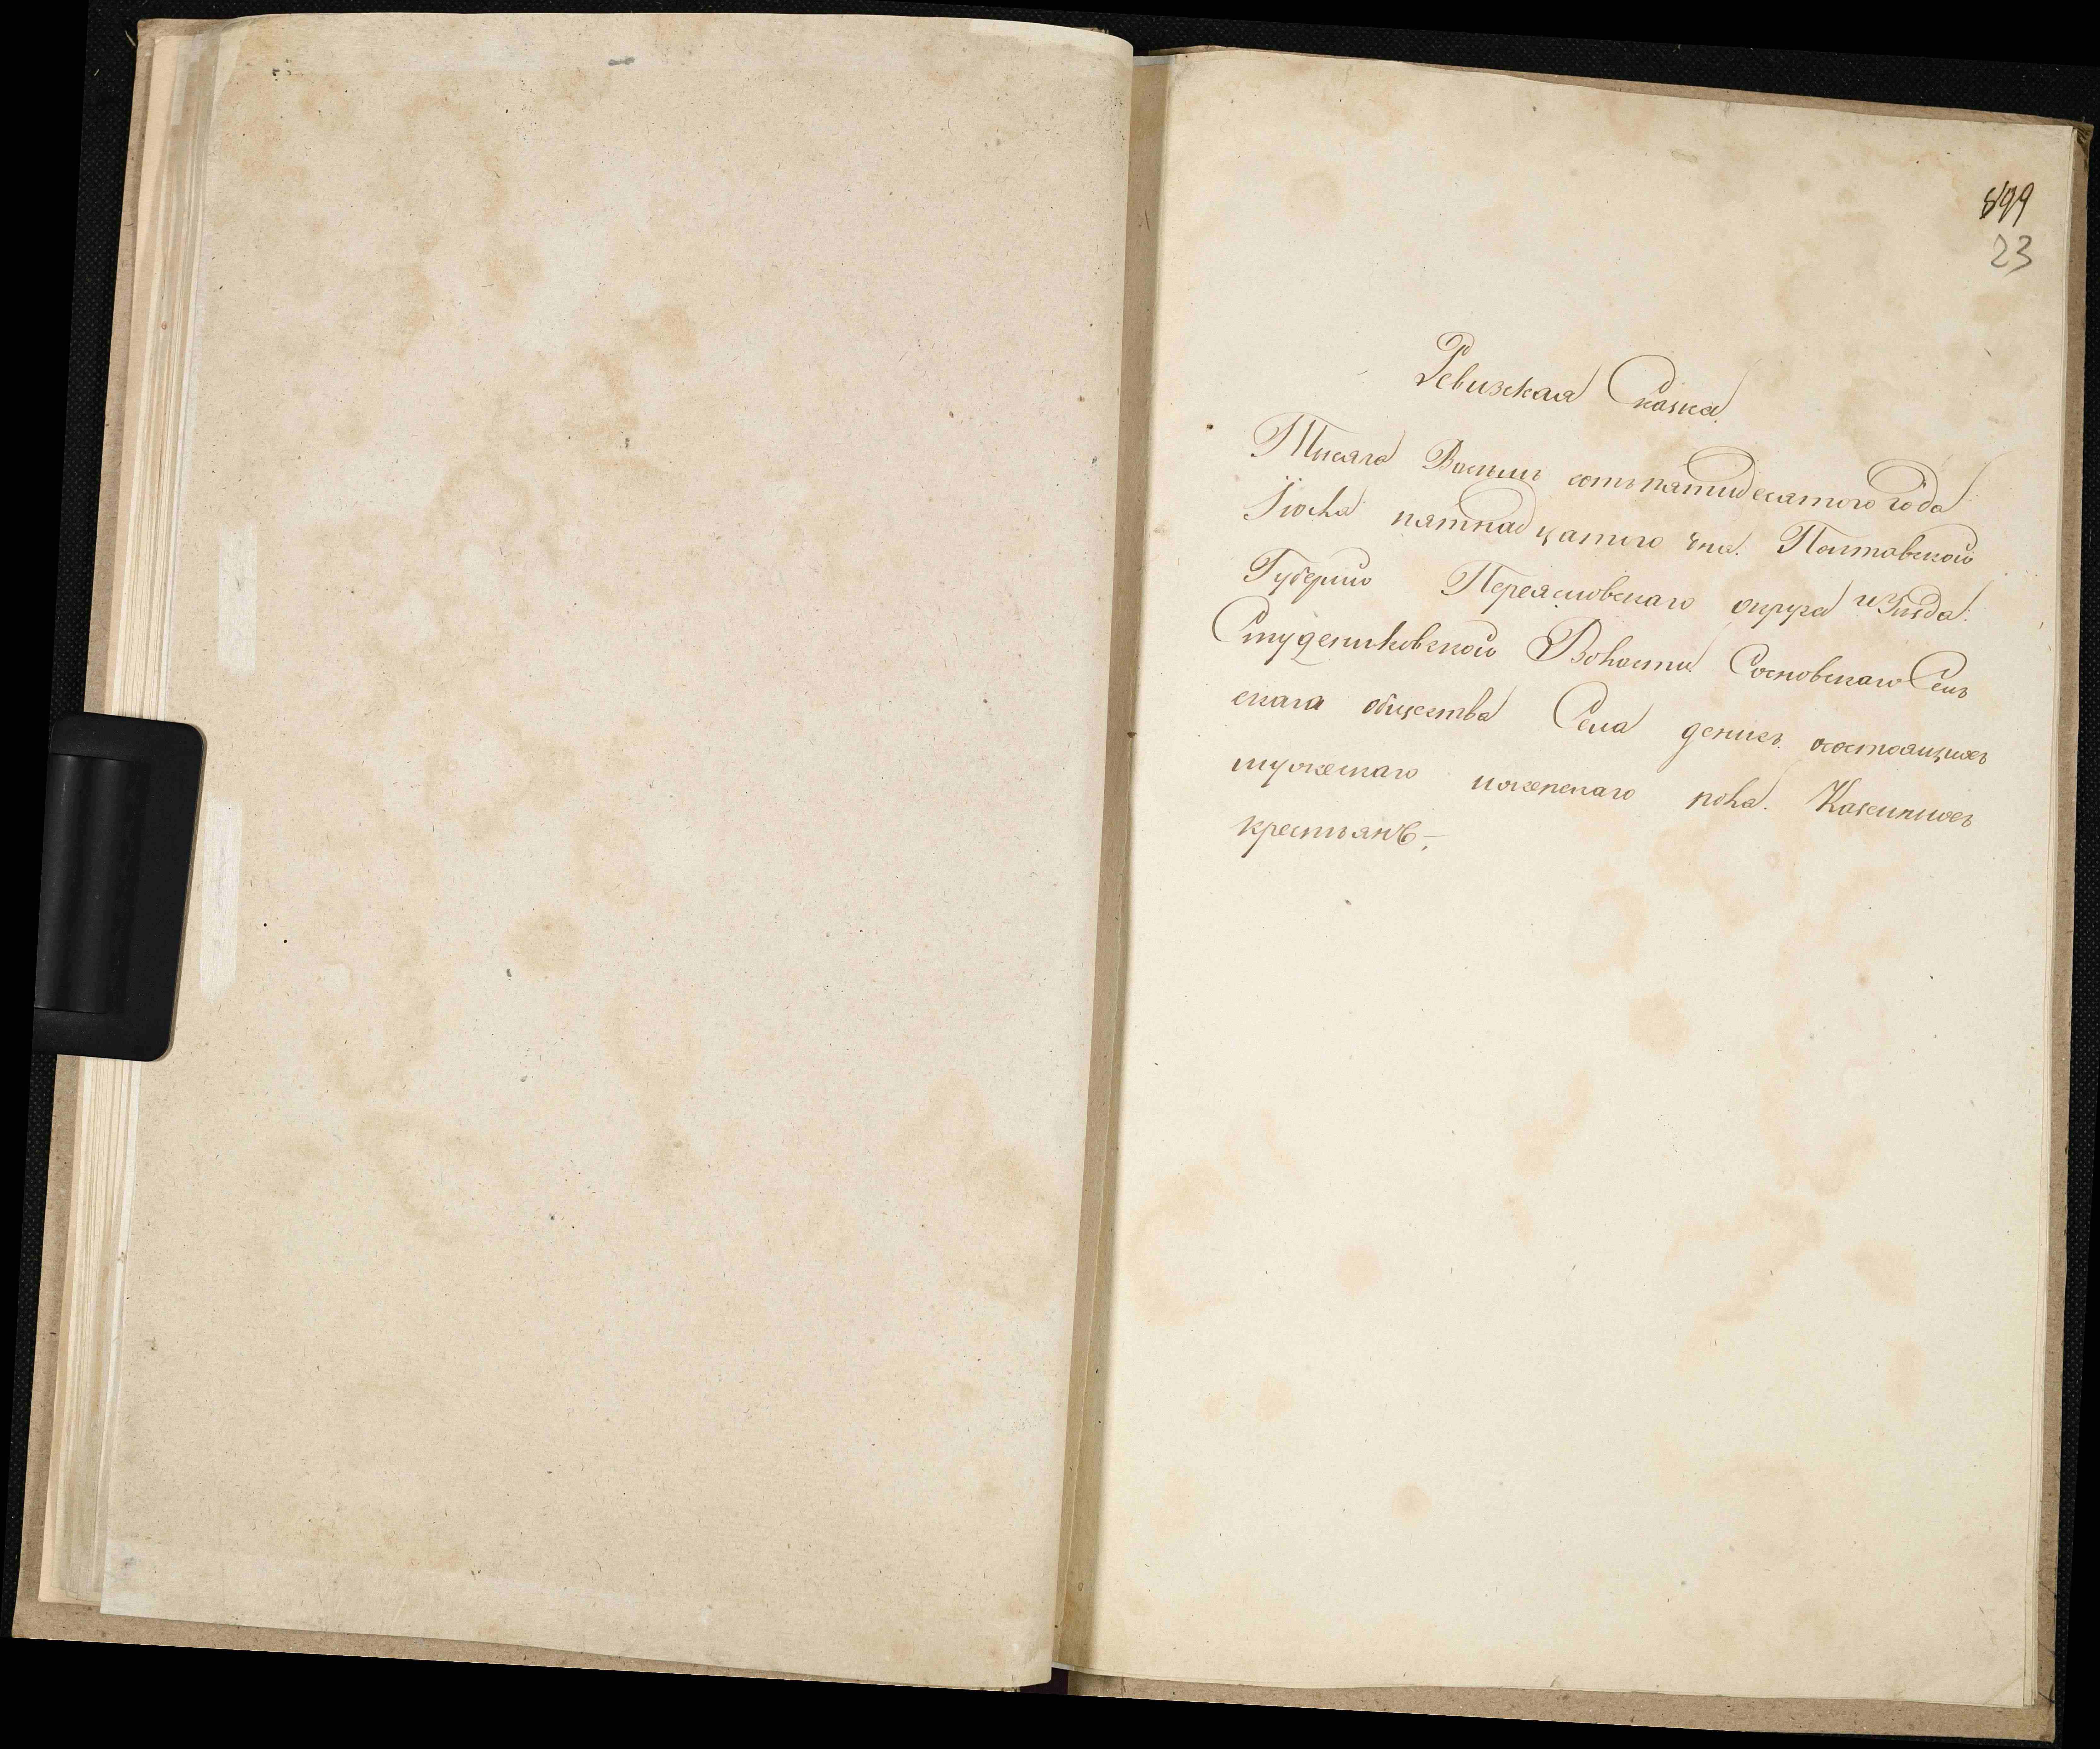 899
23
Ревизская Сказка
Тысяча Восемь сотъ пятидесятого года
Іюля пятнадцатого дня. Полтавской
Губерніи Переясловскаго округа и Уезда.
Студениковской Волости Сосновскаго Сель
скаго общества Села денисъ. о состоящихъ
мужескаго и женскаго пола. Казенныхъ
крестьянъ.